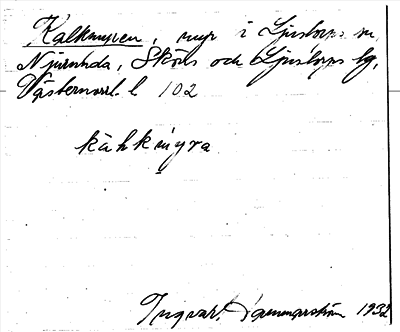 Kalkmyren, myr i Ljustorps sn,
Njurunda, Sköns och Ljustorps tg,
Västernorrl. l 102
kàhkmyra
Ingvar Hammarström 1932